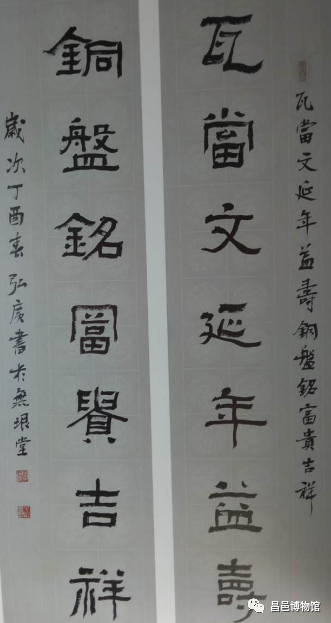 瓦當文延年益壽銅盤銘富貴吉祥
瓦當文延年益壽
銅盤銘富貴吉祥
歲次丁酉春弘廣書於無垠堂
昌邑博物馆